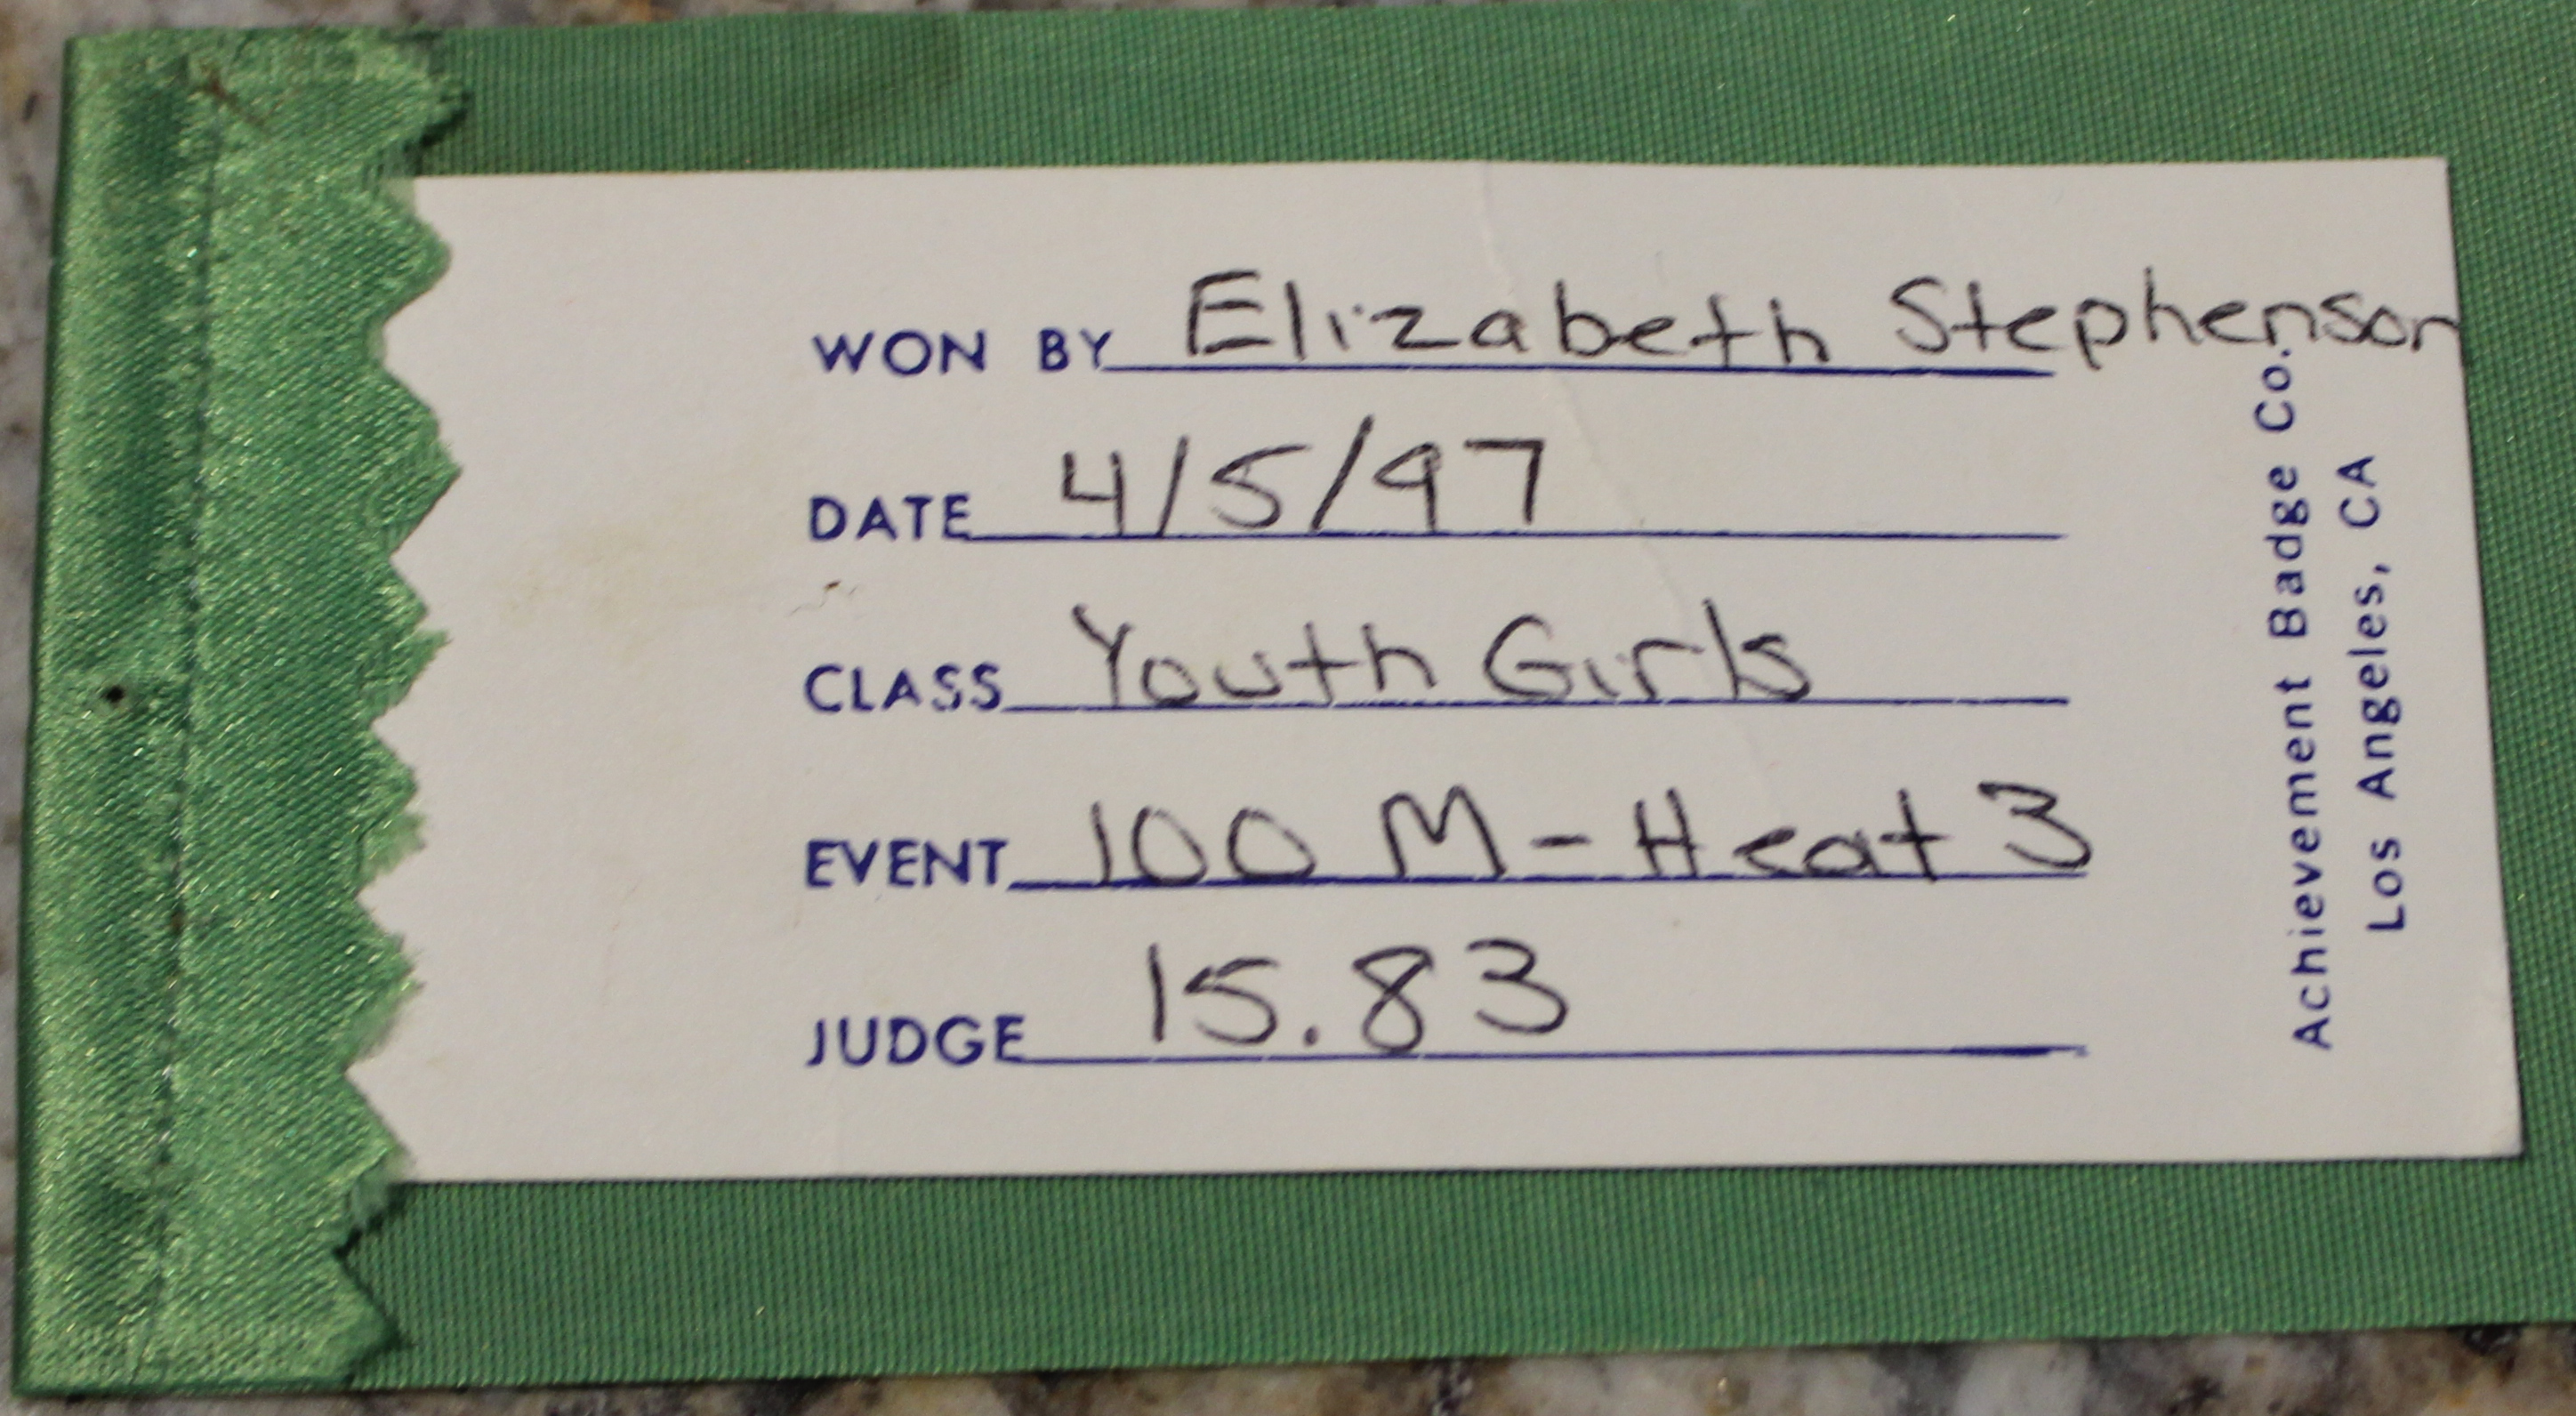 WON BY Elizabeth Stephenson
DATE 4/5/97
CLASS Youth Girls
EVENT 100 M - Heat 3
JUDGE 15.83
Achievement Badge Co.
Los Angeles, CA